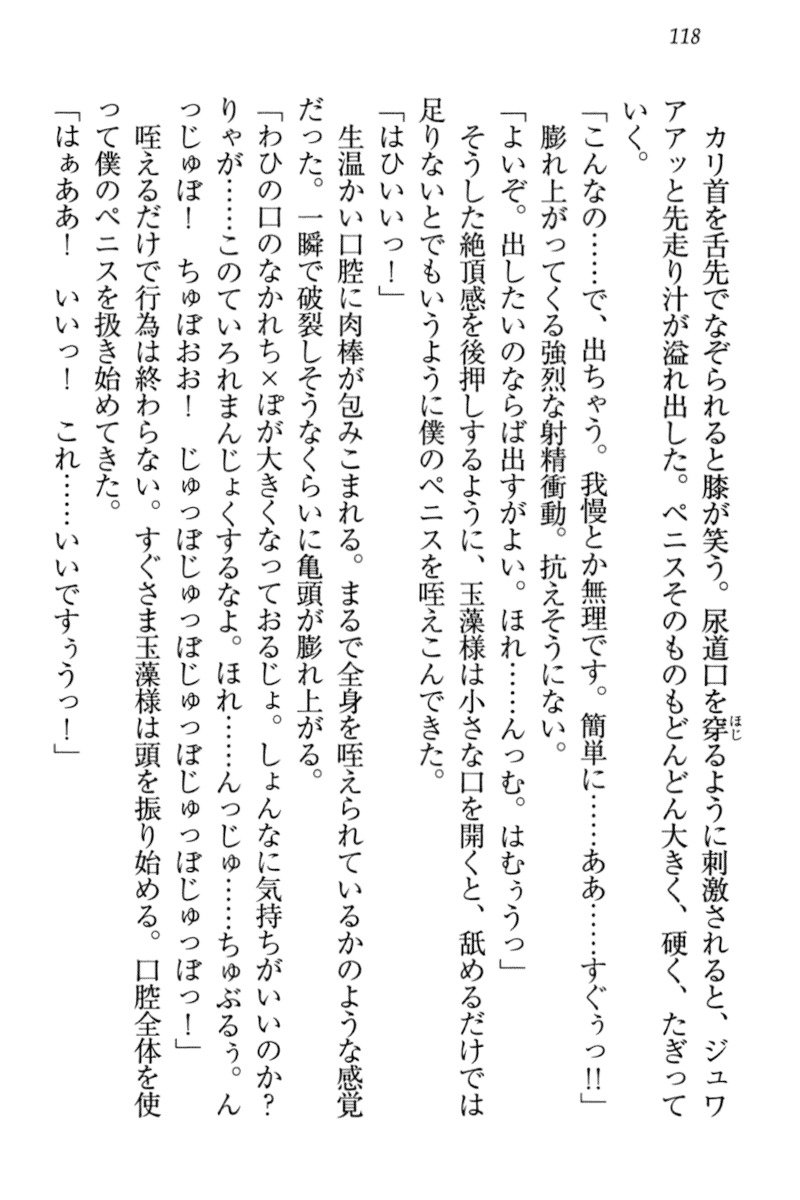 118
カリ首を舌先でなぞられると膝が笑う。尿道口を穿るように刺激されると、ジュワ
アアッと先走り汁が溢れ出した。ペニスそのものもどんどん大きく、硬く、たぎって
いく。
「こんなの……で、出ちゃう。我慢とか無理です。簡単に……ああ……すぐぅっ!!」
膨れ上がってくる強烈な射精衝動。抗えそうにない。
「よいぞ。出したいのならば出すがよい。ほれ……んっむ。はむぅうっ」
そうした絶頂感を後押しするように、玉藻様は小さな口を開くと、舐めるだけでは
足りないとでもいうように僕のペニスを咥えこんできた。
「はひいいっ！」
生温かい口腔に肉棒が包みこまれる。まるで全身を咥えられているかのような感覚
だった。一瞬で破裂しそうなくらいに亀頭が膨れ上がる。
「わひの口のなかれち×ぽが大きくなっておるじょ。しょんなに気持ちがいいのか？
りゃが……このていろれまんじょくするなよ。ほれ……んっじゅ……ちゅぶるぅ。ん
っじゅぼ！　ちゅぼおお！　じゅっぽじゅっぽじゅっぽじゅっぽじゅっぽっ！」
咥えるだけで行為は終わらない。すぐさま玉藻様は頭を振り始める。口腔全体を使
って僕のペニスを扱き始めてきた。
「はぁああ！　いいっ！　これ……いいですぅうっ！」
ほじ